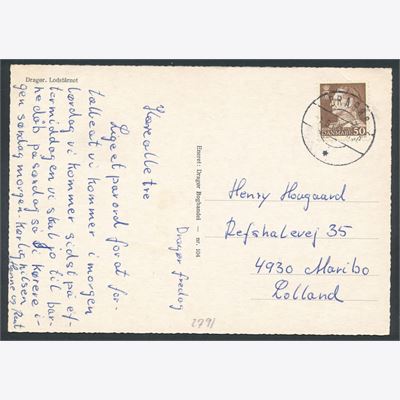 Dragør. Lodstårnet
Dragør fredag
Kære alle tre
Lige et par ord for at for-
tælle at vi kommer i morgen
lørdag vi kommer sidst på ef-
termiddagen vi skal jo til bar-
nedåb på søndag så vi kører i-
gen søndag morgen kærlig hilsen
Hanne og
Eneret: Dragør Boghandel — nr. 104
DRAGØR
DANMARK 50
Henry Hougaard
Refshalevej 35
4930 Maribo
Lolland
2791